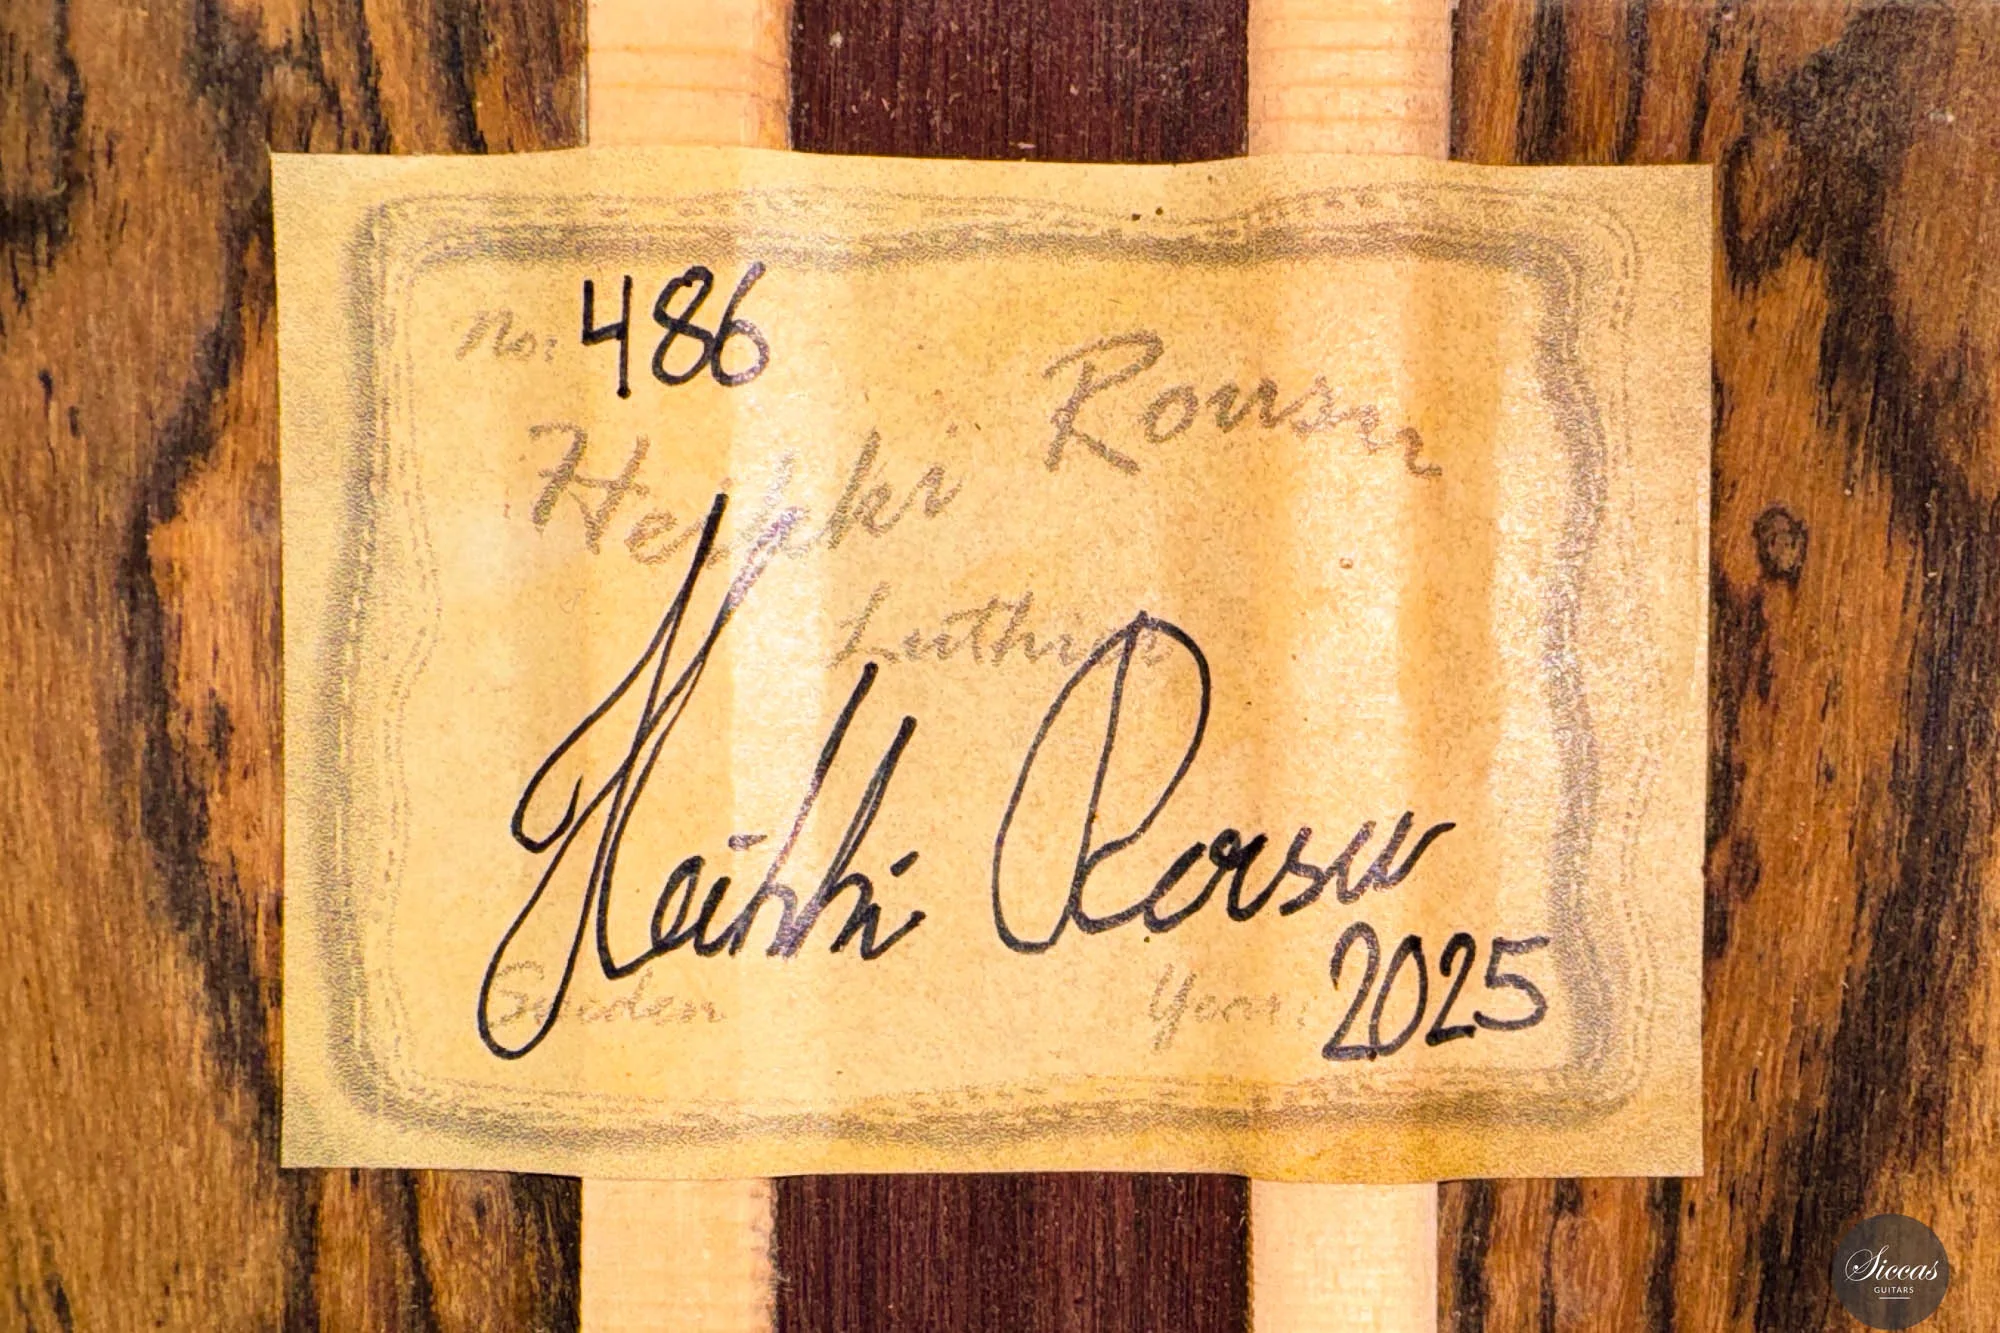 No: 486
Heikki Rousu
Luthier
Heikki Rousu
Sweden Year: 2025
Siccas
GUITARS